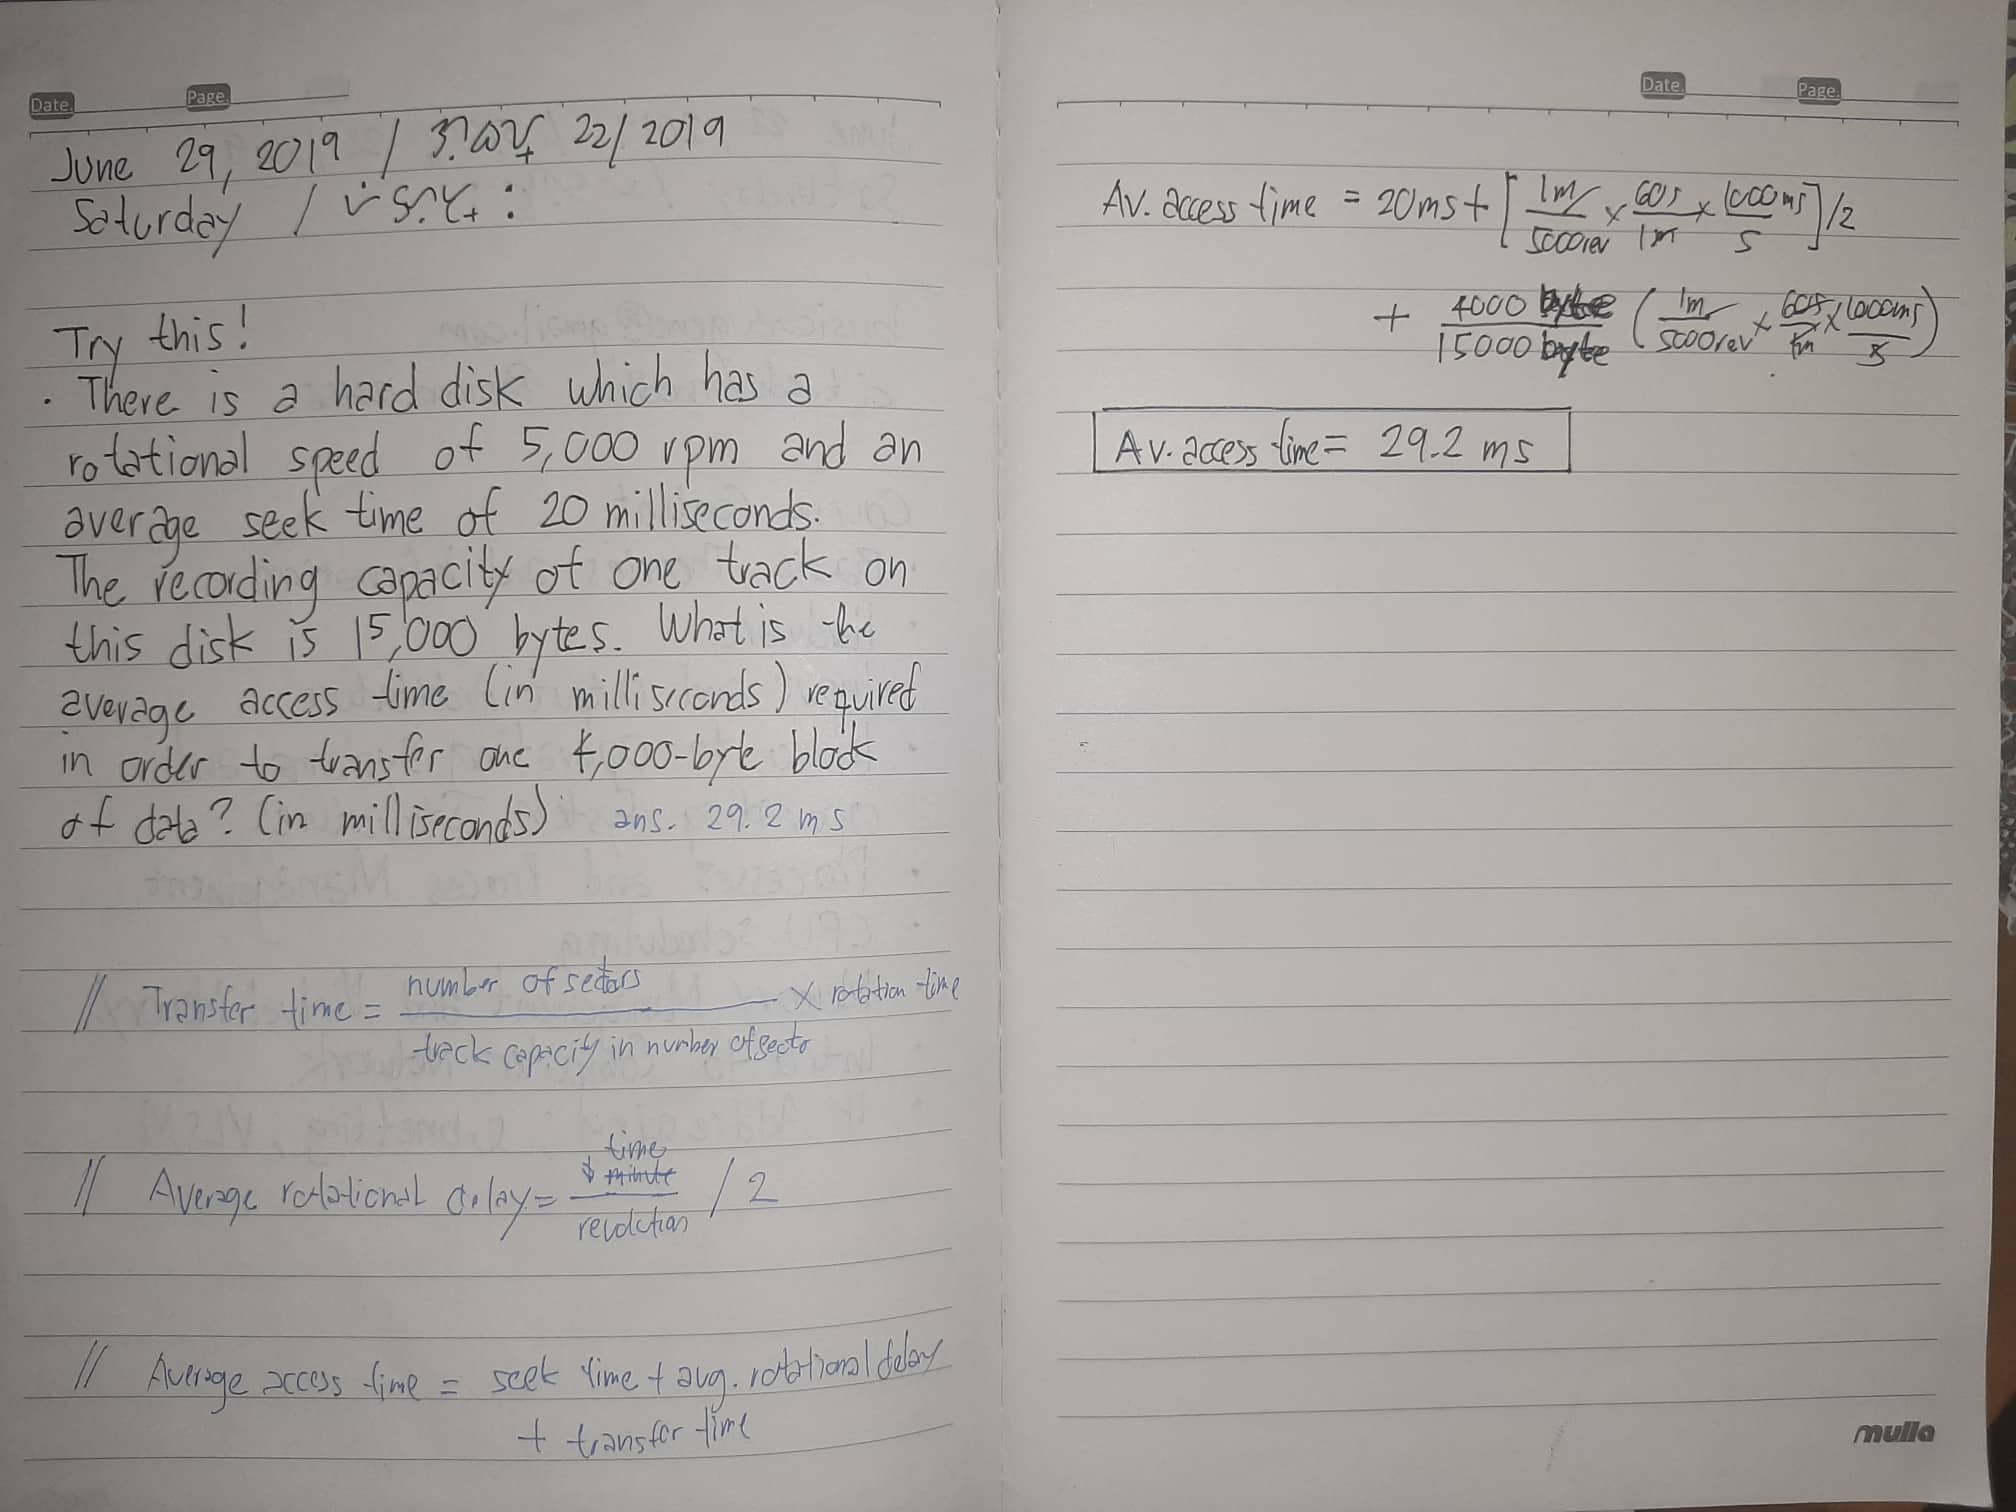 Date.
Page.
June 29, 2019 / 22/2019
Saturday /
Try this!
• There is a hard disk which has a
rotational speed of 5,000 rpm and an
average seek time of 20 milliseconds.
The recording capacity of one track on
this disk is 15,000 bytes. What is the
average access time (in milliseconds) required
in order to transfer one 4,000-byte block
of data? (in milliseconds) ans. 29.2 ms
// Transfer time = number of sectors / track capacity in number of sector × rotation time
// Average rotational delay = time / revolution / 2
// Average access time = seek time + avg. rotational delay
+ transfer time
Date.
Page.
Av. access time = 20ms + [1m/5000rev × 60s/1m × 1000ms/s]/2
+ 4000 byte/15000 byte (1m/5000rev × 60s/1m × 1000ms/s)
Av. access time = 29.2 ms
mulla